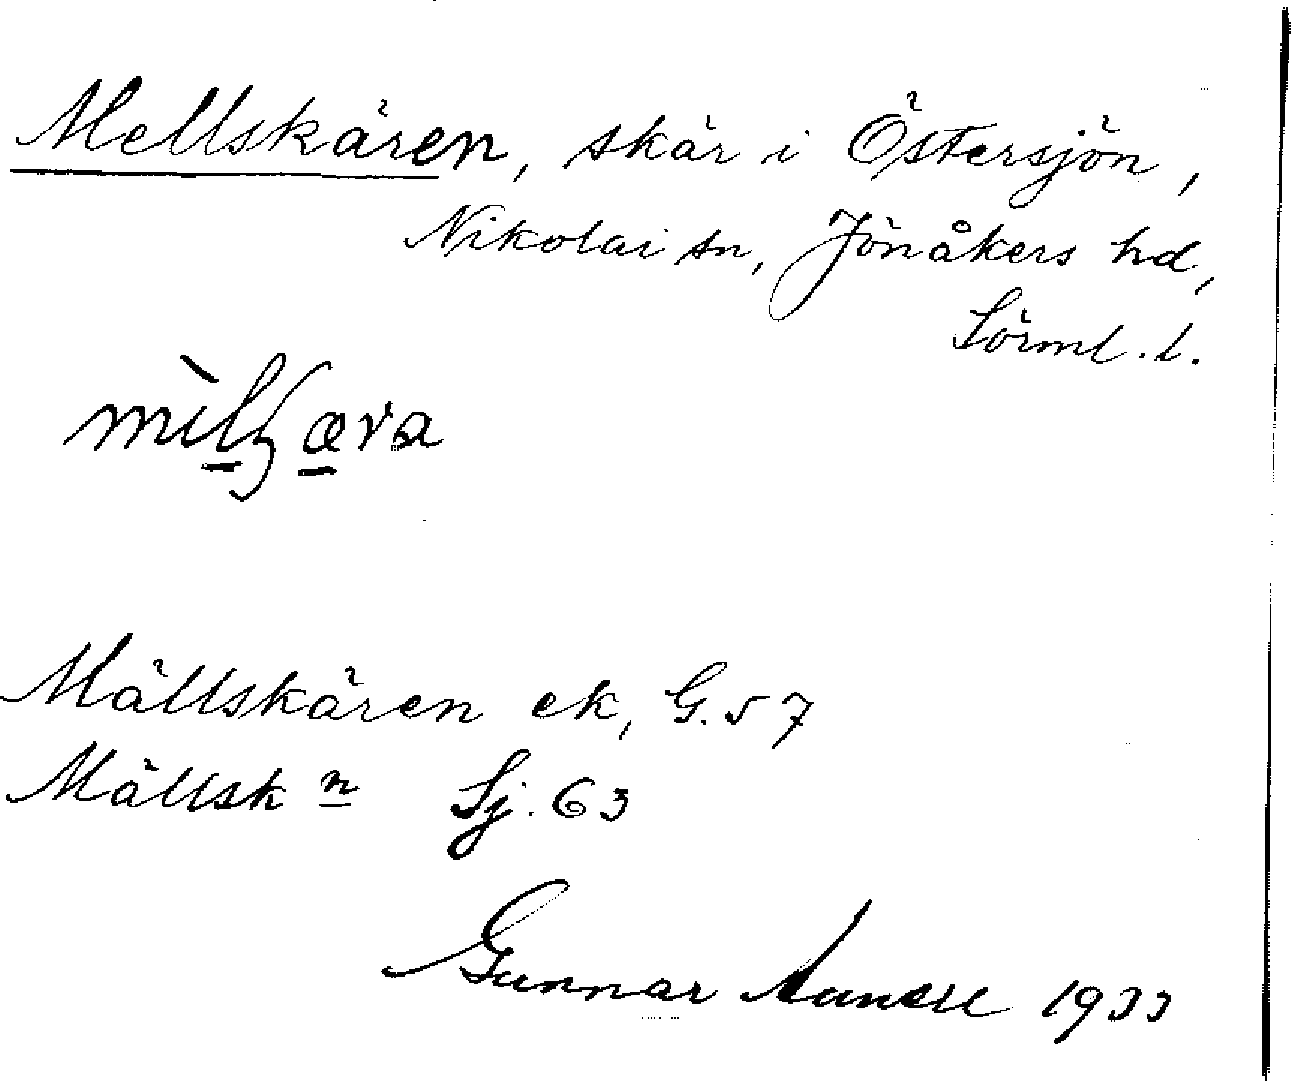 Mellskären, skär i Östersjön,
Nikolai sn, Jönåkers hd,
Sörml. l.
Mällskären ek, G. 57
Mällsk n Sj. 63
Gunnar 1933